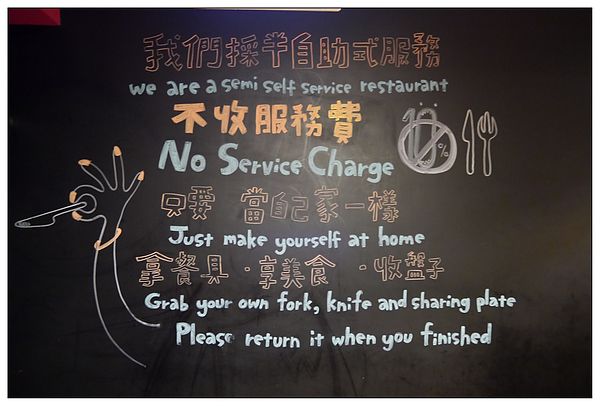 我們採半自助式服務
we are a semi self service restaurant
不收服務費
No Service Charge
10%
只要 當自己家一樣
Just make yourself at home
拿餐具·享美食·收盤子
Grab your own fork, knife and sharing plate
Please return it when you finished